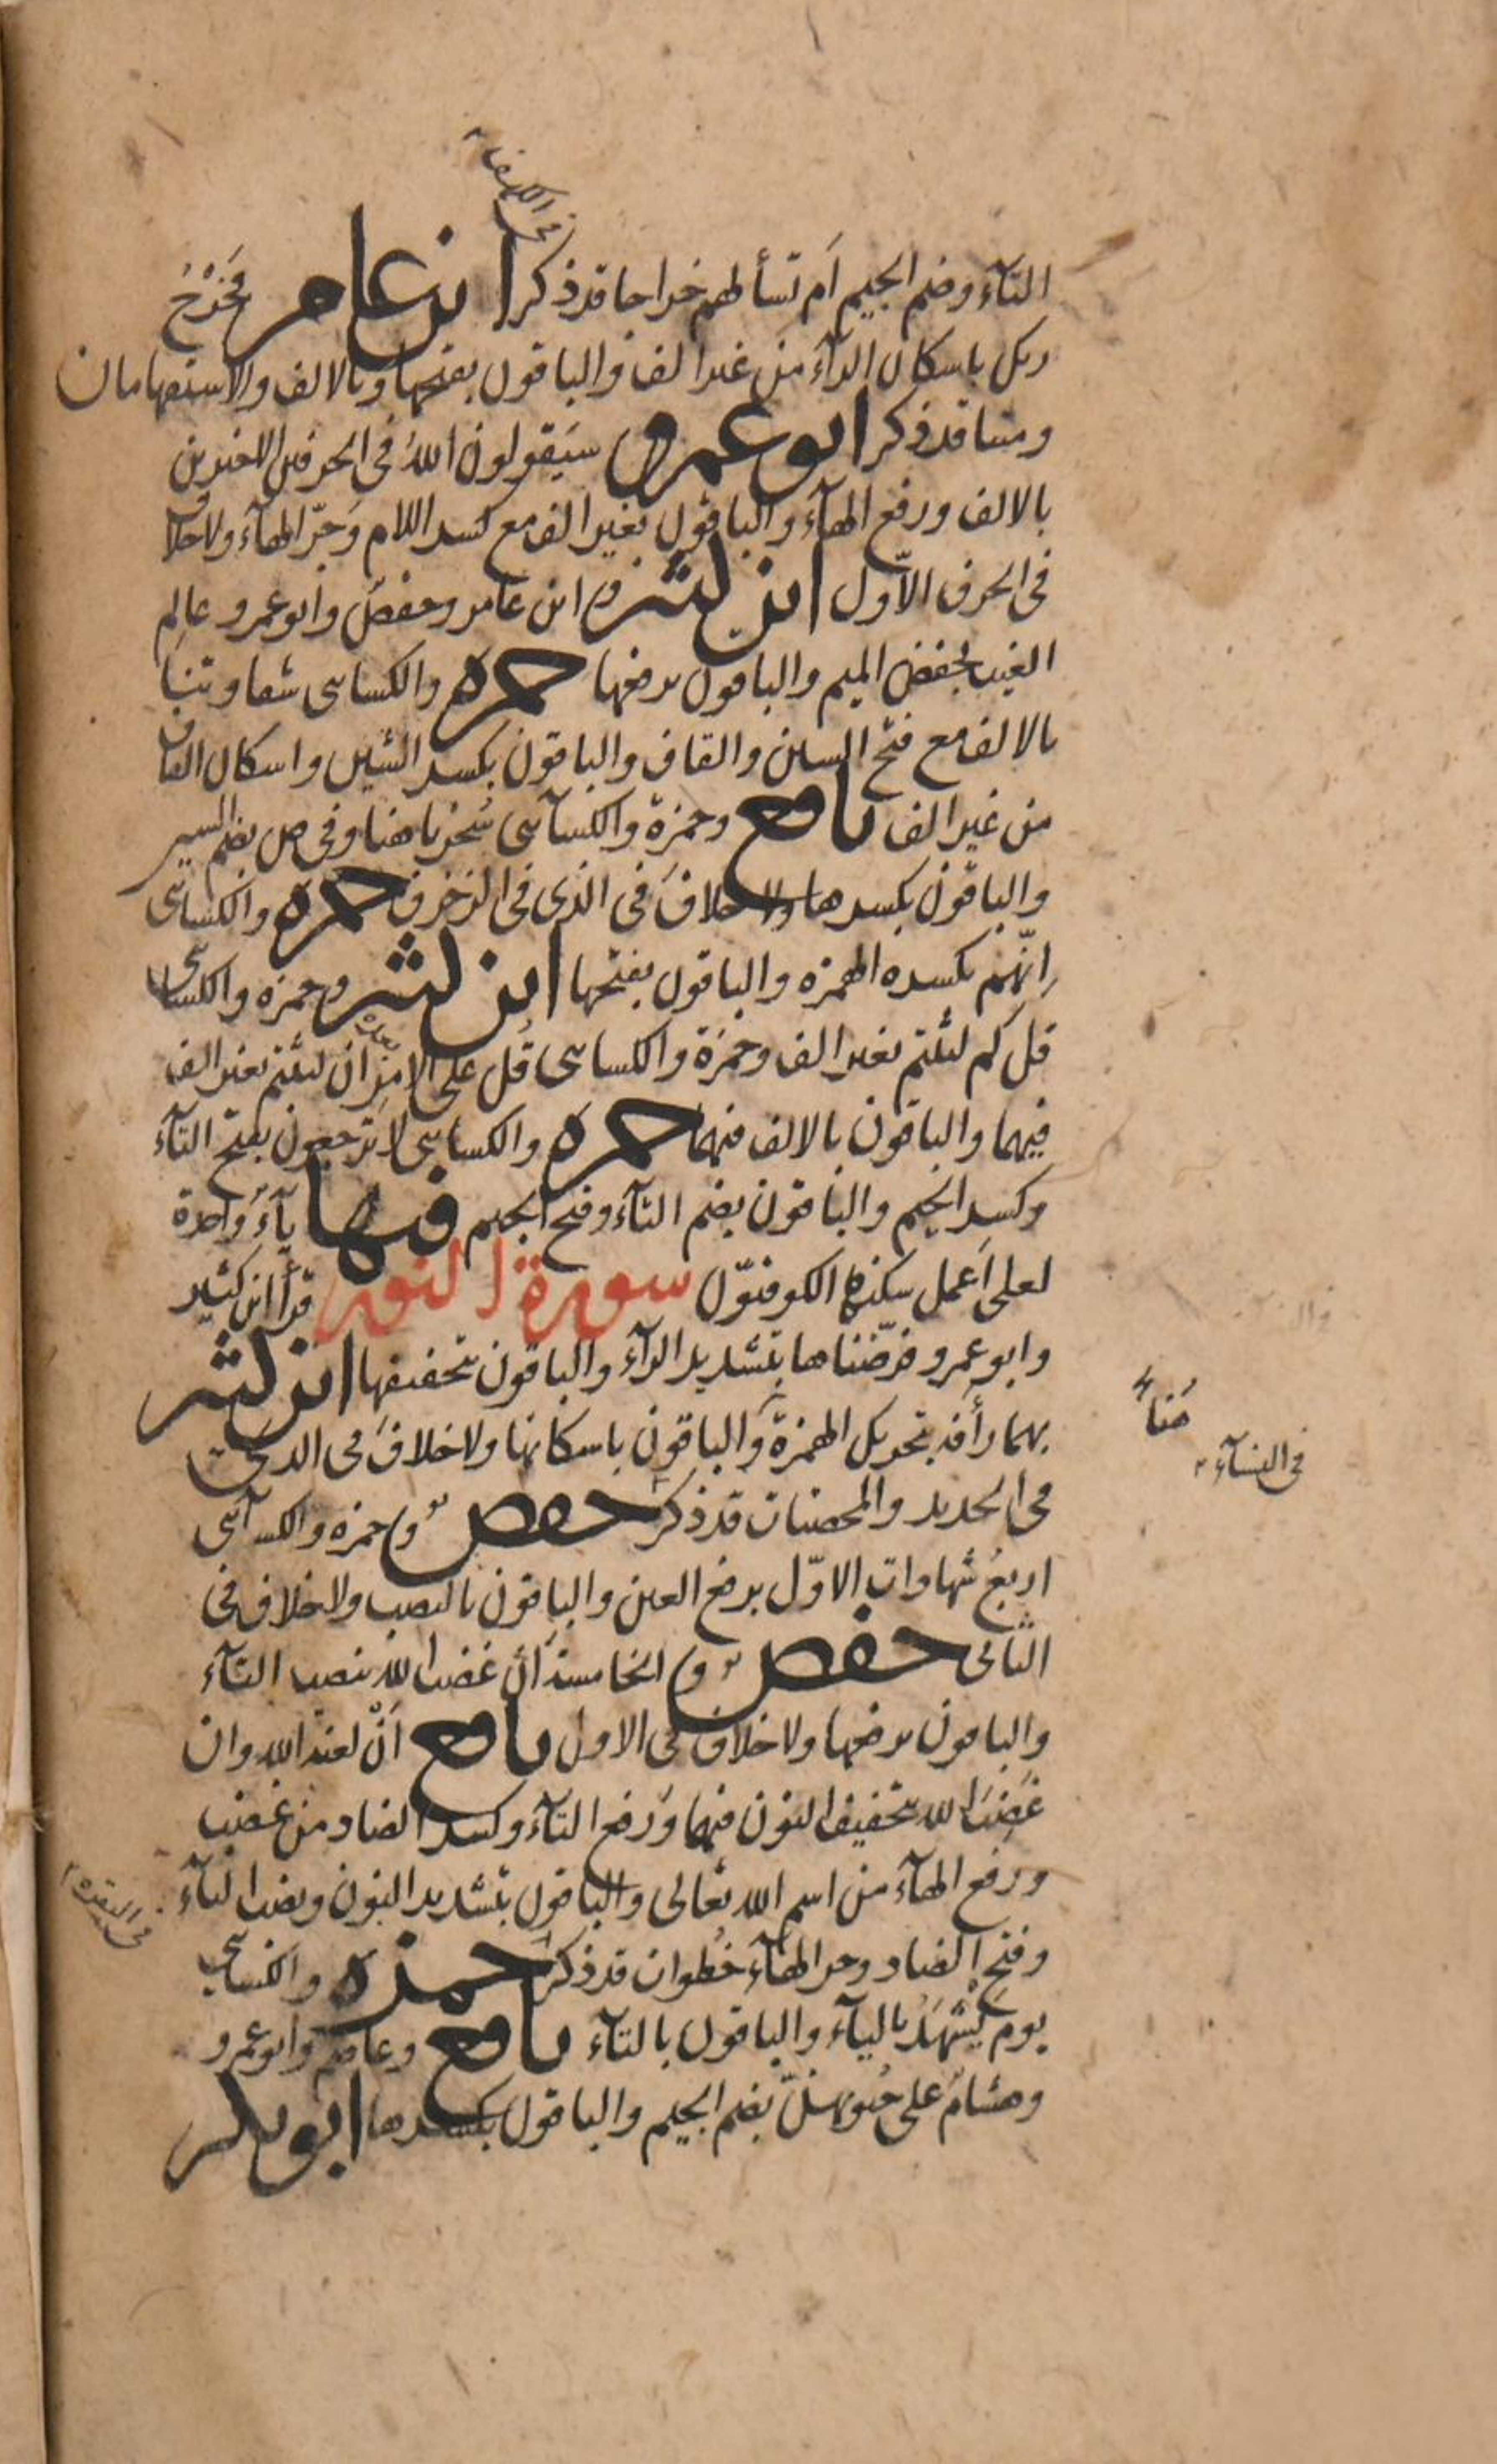 في الكهف
التآء وضم الجيم اَم تسألهم خراجا قد ذكر ابن عامر فخَرْجُ
ربك باسكان الرآء من غير الف والباقون بفتحها وبالالف والاستفهامان
ومتنا قد ذكر ابو عمرو سَيَقولون اللهُ في الحرفين الاخيرين
بالالف ورفع الهآء والباقون بغير الف مع كسر اللام وَجرّ الهآء ولا خلاف
في الحرف الاّول ابن كثير وابن عامر وحفصٌ وابو عمرو عالِم
الغيب بخفض الميم والباقون برفعها حمزه والكسائي شقاوتنَا
بالالف مع فتح الشين والقاف والباقون بكسر الشين واسكان القاف
من غير الف نافع وحمزة والكسآئي سُخريا هنا وفي ص بضم السين
والباقون بكسرها ولا خلافَ في الذي في الزخرف حمزه والكسائي
اِنّهُم بكسره الهمزه والباقون بفتحها ابن كثير وحمزه والكسائي
قل كم لبثتم بغير الف وحمزة والكسائي قُل على الامر ان لبثتم بغير الف
فيهما والباقون بالالف فيهما حمزه والكسائي لا تَرجعون بفتح التآء
وكسر الجيم والباقون بضم التآء وفتح الجيم فيها يآءٌ واحدة
لعلي اَعمل سكنها الكوفيّون سورة النور قرأ ابن كثير
وابو عمرو فرّضناها بتشديد الرآء والباقون بتخفيفها ابن كثير
بهما رأَفة بتحريك الهمزة والباقون باسكانها ولا خلافَ في الذي
هُنا
في النسآء
في الحديد والمحصنات قد ذكر حفص وحمزه والكسآئي
اربعُ شهادات الاوّل برفع العين والباقون بالنصب ولا خلاف في
الثاني حفص والخامسةَ اَن غضب الله بنصب التآء
والباقون برفعها ولا خلاف في الاول نافع اَنْ لعنة الله وان
غَضِبَ الله بتخفيف النون فيهما وَرفع التآء وكسر الضاد من غضب
ورفع الهآء من اسم الله تعالى والباقون بتشديد النون ونصب التآء
في البقره
وفتح الضاد وجر الهآء خُطوات قد ذكر حمزه والكسائي
يوم يَشْهَدُ باليآء والباقون بالتآء نافع وعاصم وابو عمرو
وهشامٌ على جُيوبهنّ بضم الجيم والباقون بكسرها ابو بكر